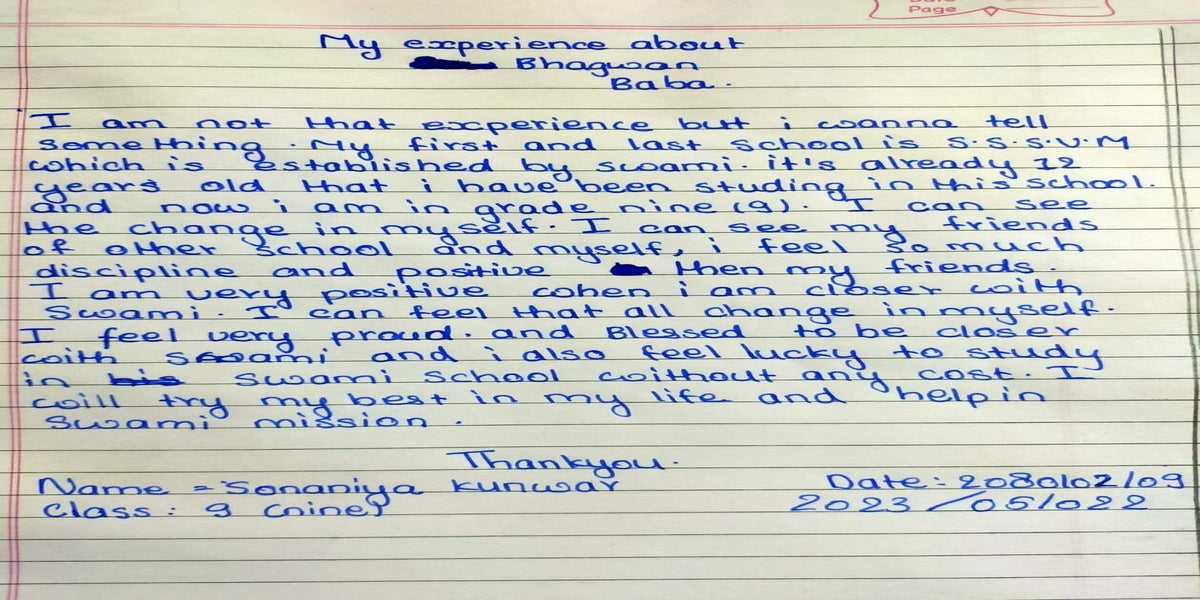 Page
My experience about
Bhagwan
Baba.
I am not that experience but i wanna tell
something. My first and last school is S.S.S.V.M
which is established by swami. it's already 12
years old that i have been studing in this school.
and now i am in grade nine (9). I can see
the change in myself. I can see my friends
of other school and myself, i feel so much
discipline and positive then my friends.
I am very positive when i am closer with
Swami. I can feel that all change in myself.
I feel very proud. and Blessed to be closer
with swami and i also feel lucky to study
in swami school without any cost. I
will try my best in my life and help in
swami mission.
Thankyou.
Name = Sonaniya Kunwar
Date: 2080/02/09
Class: 9 (nine)
2023/05/022